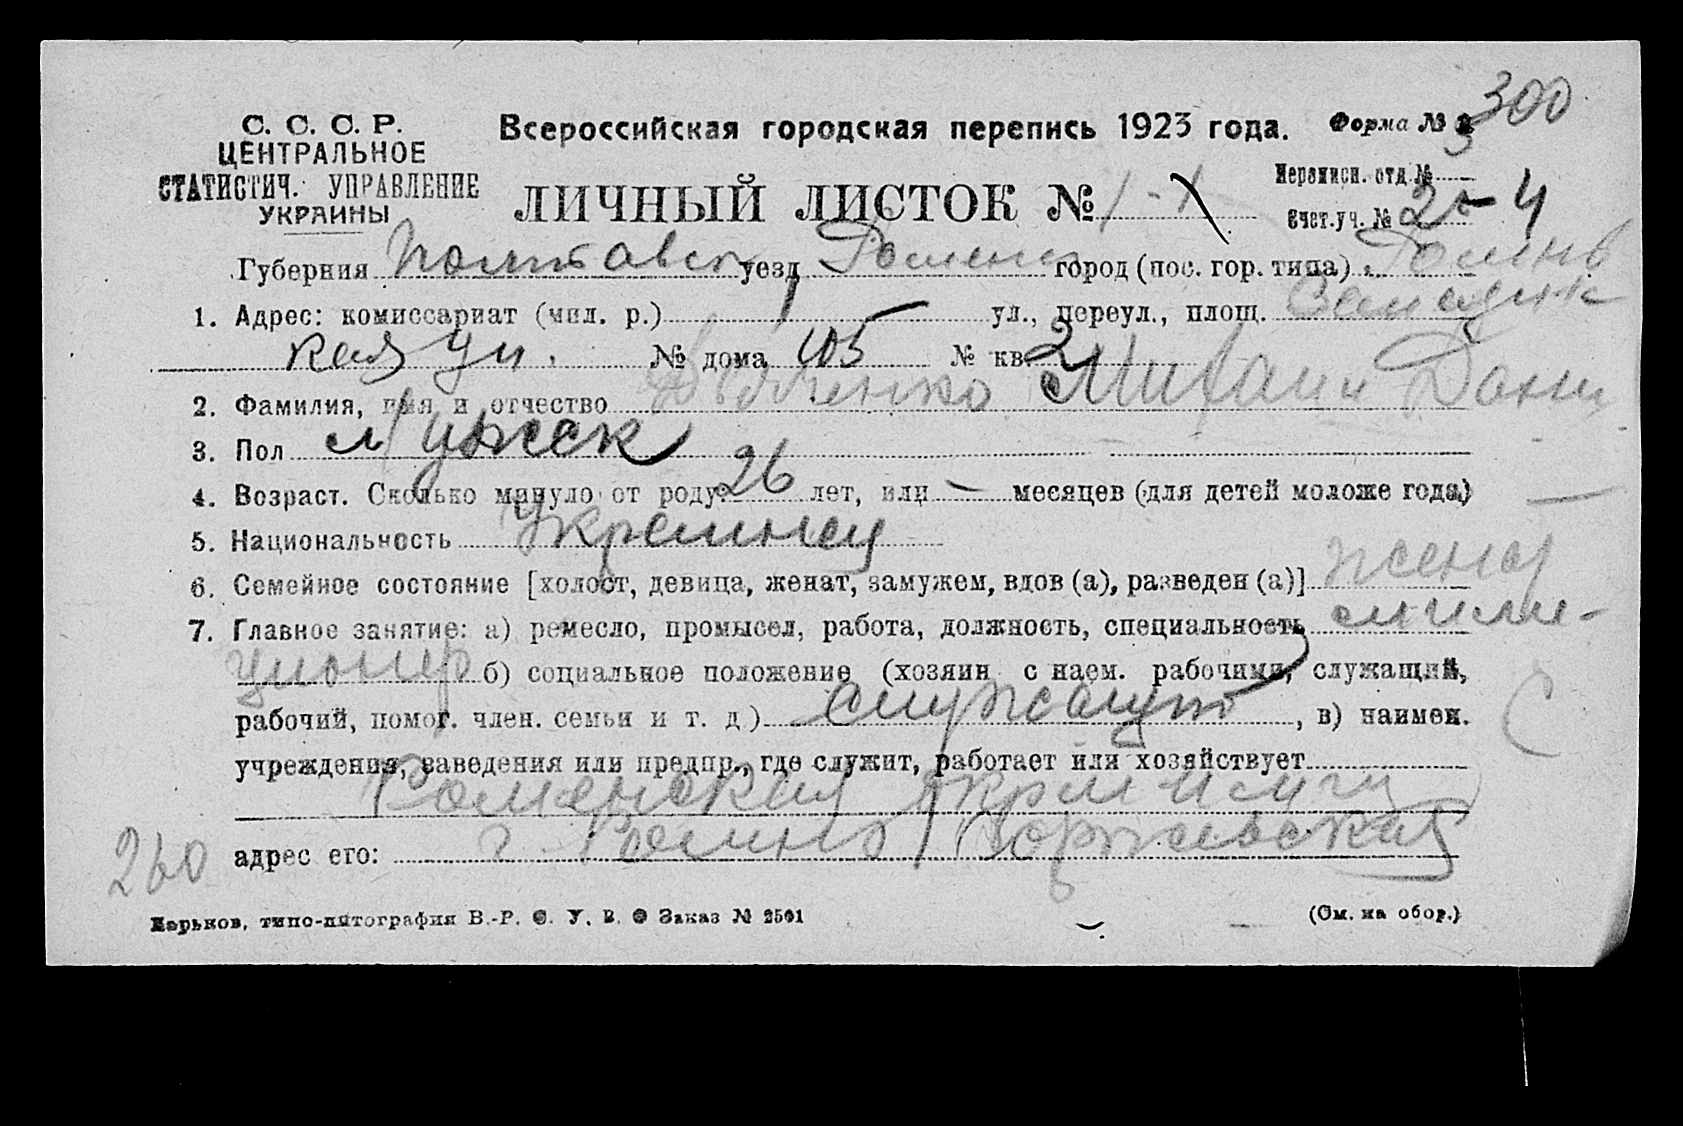 300
С. С. С. Р.
ЦЕНТРАЛЬНОЕ
СТАТИСТИЧ. УПРАВЛЕНИЕ
УКРАИНЫ
Всероссийская городская перепись 1923 года. Форма №
ЛИЧНЫЙ ЛИСТОК № 1-1
Переписн. отд. №
Счет. уч. № 25-4
Губерния Полтавск уезд Роменск город (пос. гор. типа) Ромны
1. Адрес: комиссариат (мил. р.) 1 ул., переул., площ.
кая ул. № дома 105 № кв. 2
2. Фамилия, имя и отчество Михаил Дани
3. Пол Мужск
4. Возраст. Сколько минуло от роду? 26 лет, или — месяцев (для детей моложе года) —
5. Национальность Украинец
6. Семейное состояние [холост, девица, женат, замужем, вдов (а), разведен (а)] женат
7. Главное занятие: а) ремесло, промысел, работа, должность, специальность мили-
ционер б) социальное положение (хозяин с наем. рабочими, служащий,
рабочий, помог. член. семьи и т. д.) служащий, в) наимен.
учреждения, заведения или предпр., где служит, работает или хозяйствует
Роменская окрмилиц
адрес его: г. Ромны
260
Харьков, типо-литография В.-Р. Ф. У. В. О Заказ № 2501
(См. на обор.)
С